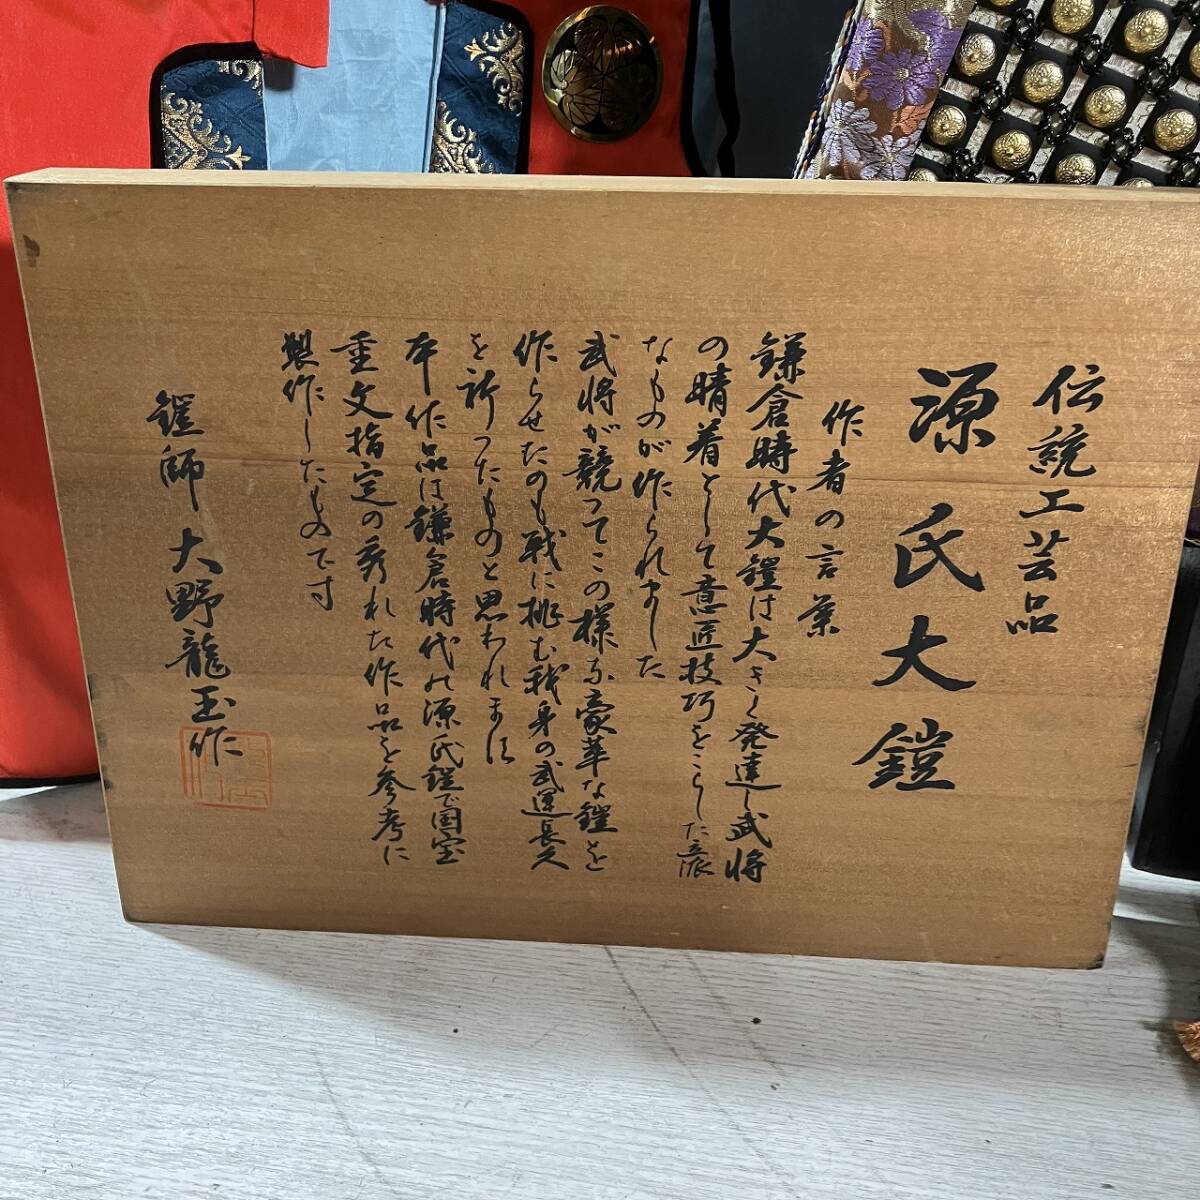 伝統工芸品
源氏大鎧
作者の言葉
鎌倉時代大鎧は大きく発達し武将
の晴着として意匠技巧をこらした立派
なものが作られました
武将が競ってこの様な豪華な鎧を
作らせたのも戦に挑む我身の武運長久
を祈ったものと思われます
本作品は鎌倉時代の源氏鎧で国宝
重文指定の秀れた作品を参考に
製作したものです
鎧師 大野龍玉作